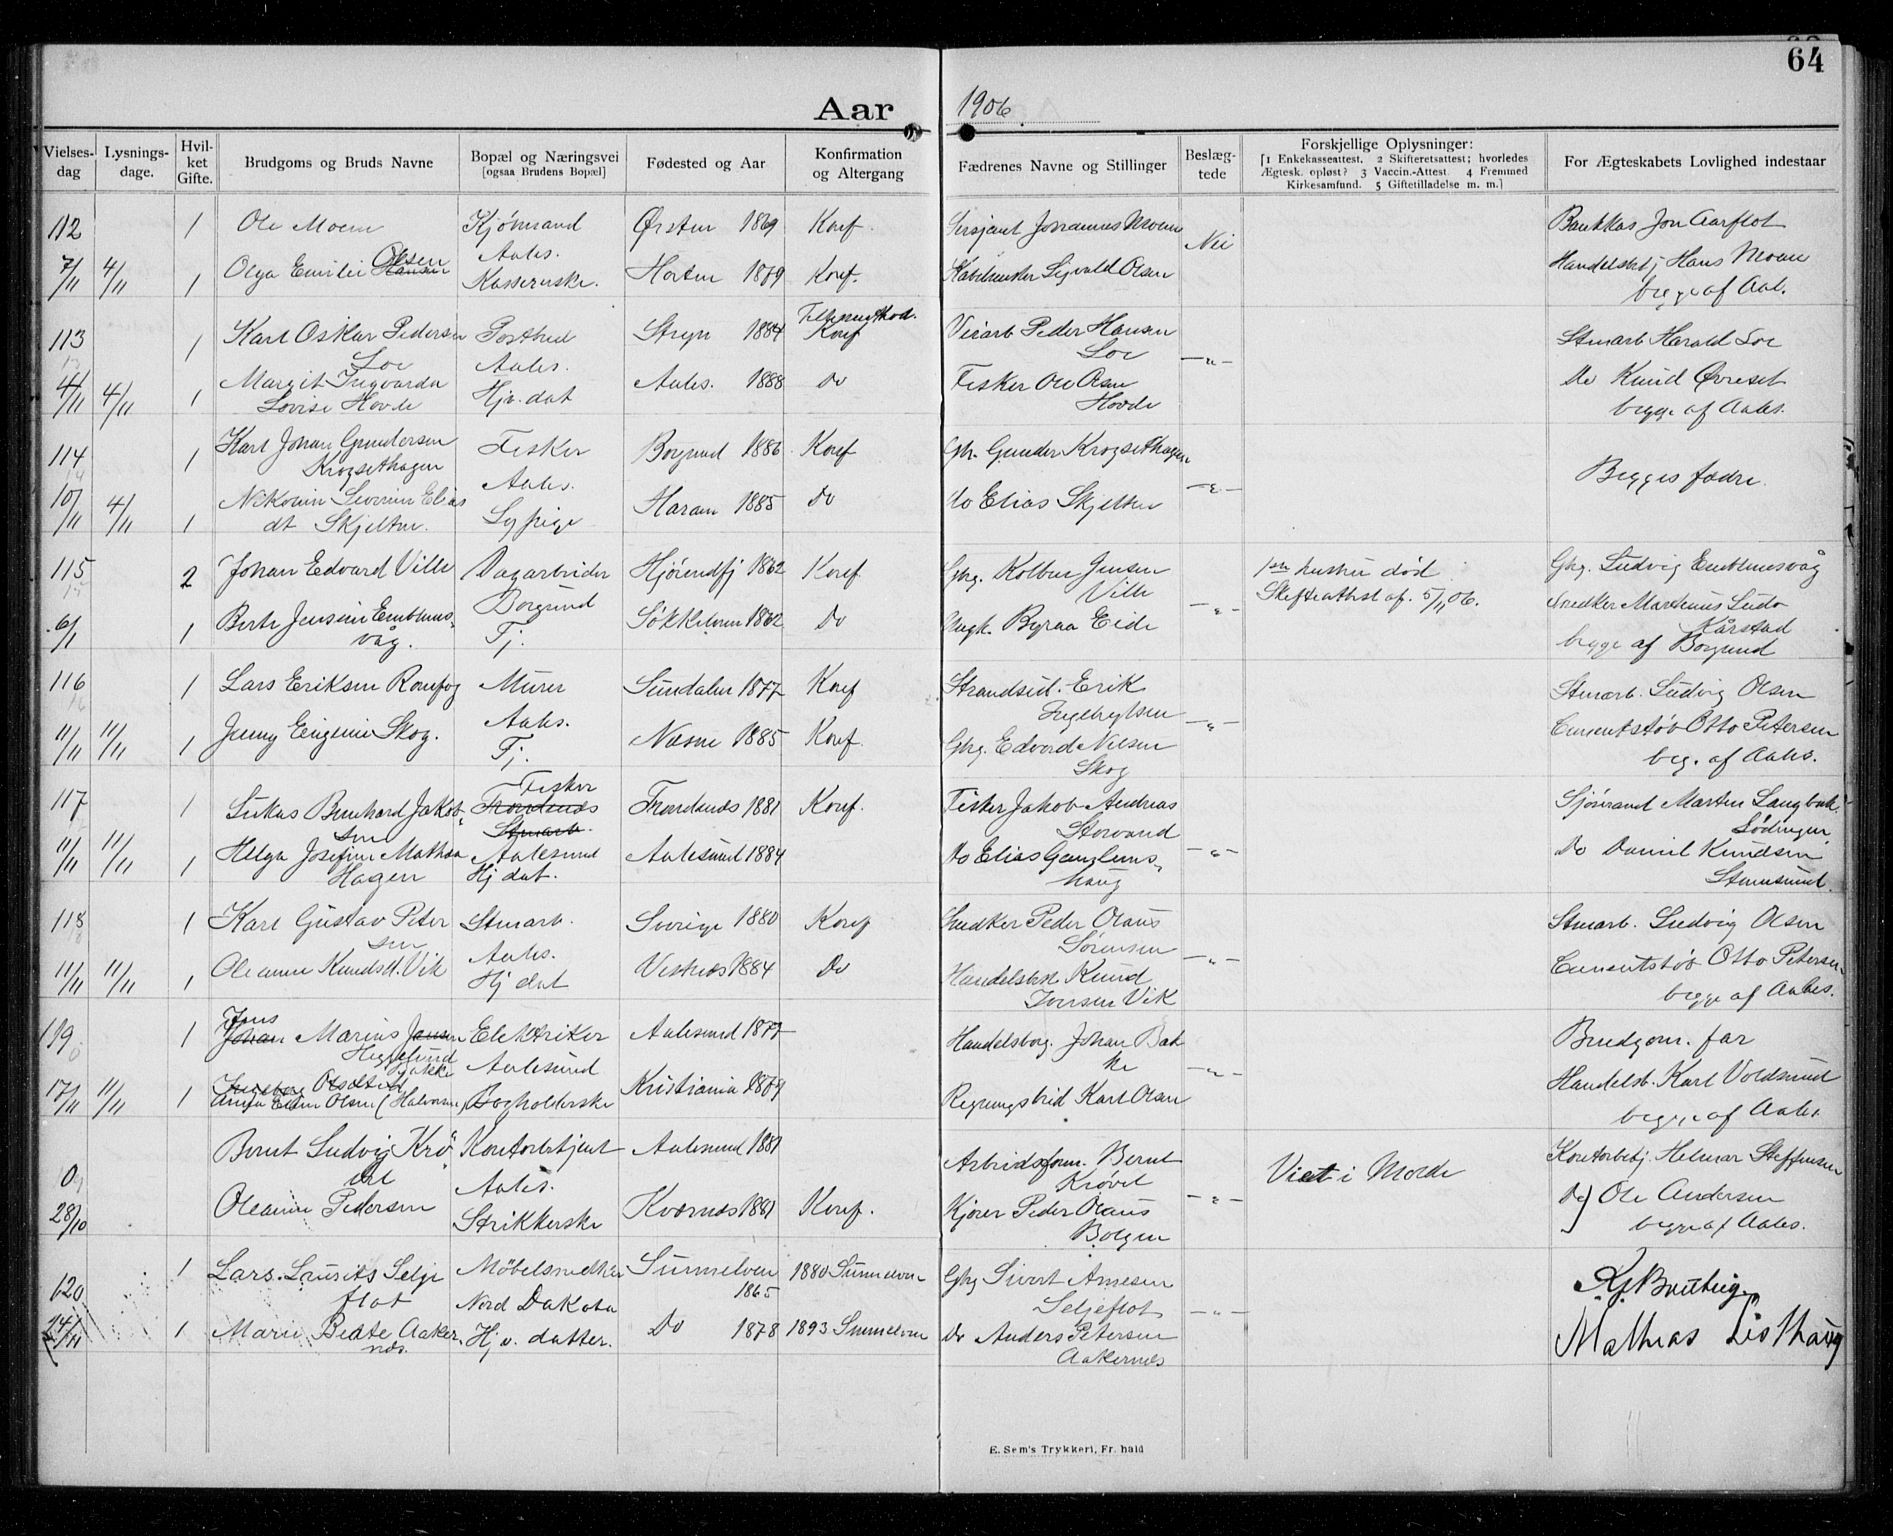 64
Aar 1906.
Vielses-dag | Lysnings-dage. | Hvil-ket Gifte. | Brudgoms og Bruds Navne | Bopæl og Næringsvei [ogsaa Brudens Bopæl] | Fødested og Aar | Konfirmation og Altergang | Fædrenes Navne og Stillinger | Beslæg-tede | Forskjellige Oplysninger: [1 Enkekasseattest. 2 Skifteretsattest; hvorledes Ægtesk. opløst? 3 Vaccin.-Attest. 4 Fremmed Kirkesamfund. 5 Giftetilladelse m. m.] | For Ægteskabets Lovlighed indestaar
112 1 Ole Moen Ørsten 1869 Konf. Sersjant Johannes Moen Nei Bankkas Jon Aarflot
Aales.
7/11 4/11 1 Olga Emilie Olsen Hansen Kassererske. Horten 1879 Konf. Sigvald Olsen Handelsbetj Hans Moen
begge af Aal.
113 1 Karl Oskar Pedersen Postbud Stryn 1884 Konf Peder Hansen Stuarb Harald Loe
Loe Aales. Loe —„—
4/11 4/11 1 Margit Ingvarda Hjv. dat Aales. 1888 Do Fisker Ole Olsen Do Knud Øvreset
Lovise Hovde Hovde begge af Aales.
114 1 Karl Johan Gundersen Fisker Borgund 1886 Konf Gbr. Gunder Krogsethagen
Krogsethagen Aales. —„— Begges fædre.
10/11 4/11 1 Elias Haram 1885 Do Do Elias Skjelten
dt Skjelten.
115 2 Johan Edvard Ville Dagarbeider Hjørendfj 1862 Konf. Gbg. Kolben Jensen 1ste hustru død Gbg. Ludvig Emblemsvåg
Borgund Ville —„— Skifteattest af. 5/11 06. Snedker Martinus Ludv
6/1 1 Berte Jensine Emblems- Tj. Søkkelven 1862 Do Eide Kårstad
våg. begge af Borgund
116 1 Lars Eriksen Murer Sundalen 1877 Konf Strandsid. Erik Stuarb. Ludvig Olsen
Aales. Ingebrigtsen —„—
11/11 11/11 1 Jenny Eugenie Skog. Tj. Næsne 1885 Konf. Gbg. Edvard Nilsen Cementstøb Otto Petersen
Skog beg. af Aales.
117 1 Lukas Bernhard Jakob- Fisker 1881 Konf. Fisker Jakob Andreas Sjømand Martin Langbak
sen Stuarb. Storvand Lødingen
11/11 11/11 1 Helga Josefine Mathea Aalesund Aalesund 1884 Do Elias —„— Do Daniel Knudsen
Hagen Hj dat. haug Stamsund.
118 1 Karl Gustav Peter Stuarb. Sverige 1880 Konf Snedker Peder Olaus Stuarb. Ludvig Olsen
sen Aales. Sørensen —„—
11/11 11/11 1 Oleanna Knudsd. Vik Hj dat Vestnes 1884 Do Handelsbet. Knud Cementstøb Otto Petersen
Iversen Vik begge af Aales.
119 1 Jens Johan Marius Jansen Elektriker Aalesund 1877 Handelsborg. Johan Bak Brudgom. far
Heggelund Bakke Aalesund ke —„—
17/11 11/11 1 Ingeborg Bogholderske Kristiania 1879 Karl Olsen Handelsb. Karl Voldsund
Olsen (Halvorsen) begge af Aales
Bernt Ludvig Krø- Kontorbetjent Aalesund 1881 Arbeidsform. Bernt Kontorbetj. Helmar Steffensen
0 vel Aales. Krøvel —„— Viet i Molde
28/10 Oleanna Pedersen Strikkerske Kvernes 1881 Konf. Kjører Peder Olaus Do} Ole Andersen
Bolgen begge af Aales.
120 1 Lars Laurits Selje Møbelsnedker Sunnelven 1865 1880 Sunnelven Gbg Sivert Arnesen
flot Nord Dakota Seljeflot —„—
24/11 1 Marie Beate Aaker- Hjv. datter. Do 1878 1893 Sunnelven Do Anders Petersen Mathias Listhaug
nes. Aakernes
E. Sem's Trykkeri, Fr.hald